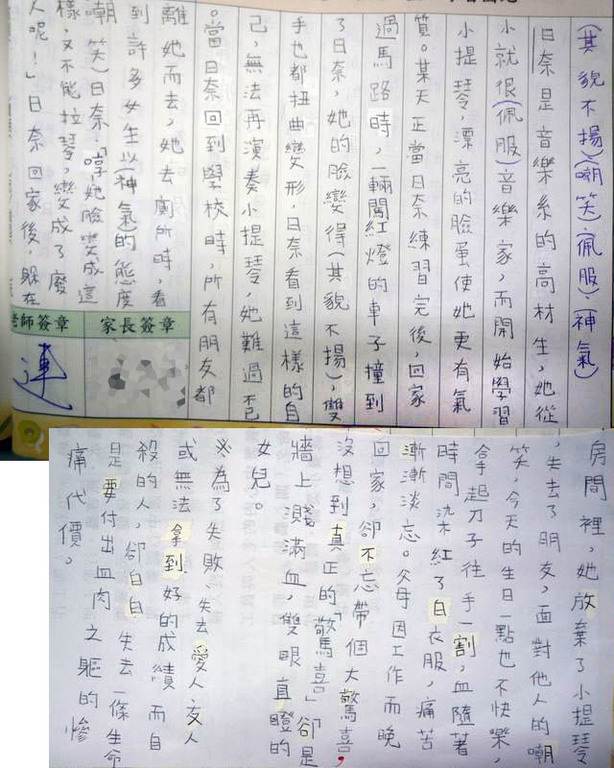 (其貌不揚)(嘲笑)(佩服)(神氣)
日奈是音樂系的高材生,她從
小就很(佩服)音樂家,而開始學習
小提琴,漂亮的臉蛋使她更有氣
質。某天正當日奈練習完後,回家
過馬路時,一輛闖紅燈的車子撞到
了日奈,她的臉變得(其貌不揚),雙
手也都扭曲變形,日奈看到這樣的自
己,無法再演奏小提琴,她難過不已
。當日奈回到學校時,所有朋友都
離她而去,她去廁所時,看
到許多女生以(神氣)的態度
嘲笑)日奈:「哼她臉變成這
樣,又不能拉琴,變成了廢
人呢!」日奈回家後,躲在
家長簽章
老師簽章
連
房間裡,她放棄了小提琴
,失去了朋友,面對他人的嘲
笑,今天的生日一點也不快樂,
拿起刀子往手一割,血隨著
時間染紅了白衣服,痛苦
漸漸淡忘。父母因工作而晚
回家,卻不忘帶個大驚喜,
沒想到真正的「驚喜」卻是
牆上濺滿血,雙眼直瞪的
女兒。
※為了失敗、失去愛人、友人
或無法拿到好的成績而自
殺的人,卻白白失去一條生命
是要付出血肉之軀的慘
痛代價。